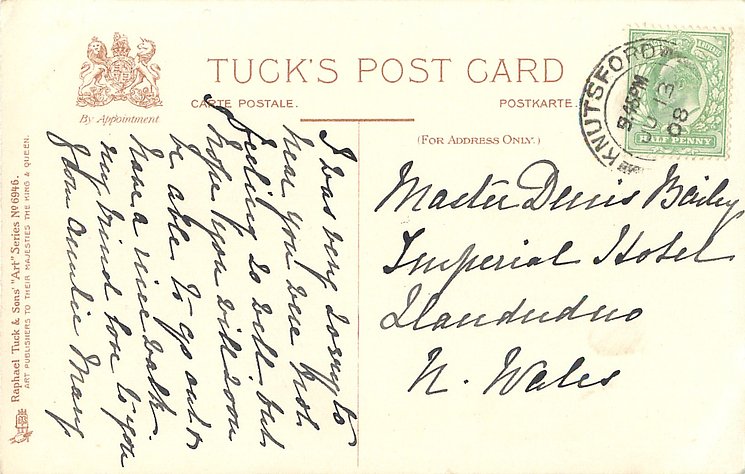 TUCK'S POST CARD
CARTE POSTALE.
POSTKARTE.
By Appointment
(FOR ADDRESS ONLY.)
KNUTSFORD
5.45PM
JU 13
08
HALF PENNY
I was very sorry to
hear you were not
feeling so well but
hope you will soon
be able to go out &
have a nice walk.
very kind love to you
from Auntie Mary
Master Denis Baily
Imperial Hotel
Llandudno
N. Wales
Raphael Tuck & Sons' "Art" Series Nº 6946.
ART PUBLISHERS TO THEIR MAJESTIES THE KING & QUEEN.